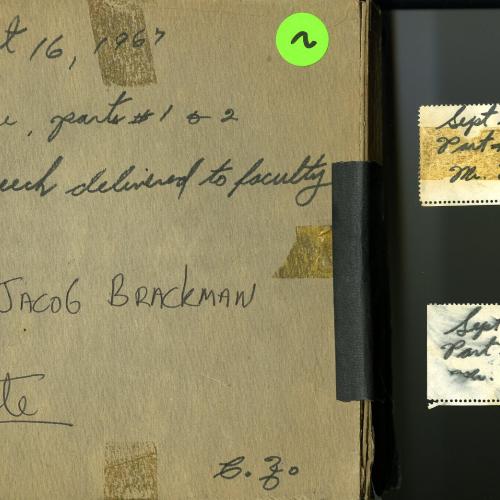 t 16, 1967
2
e, parts #1 & 2
eech delivered to faculty
JACOB BRACKMAN
te
C. Z.
Sept
Part
Mr.
Sept
Part